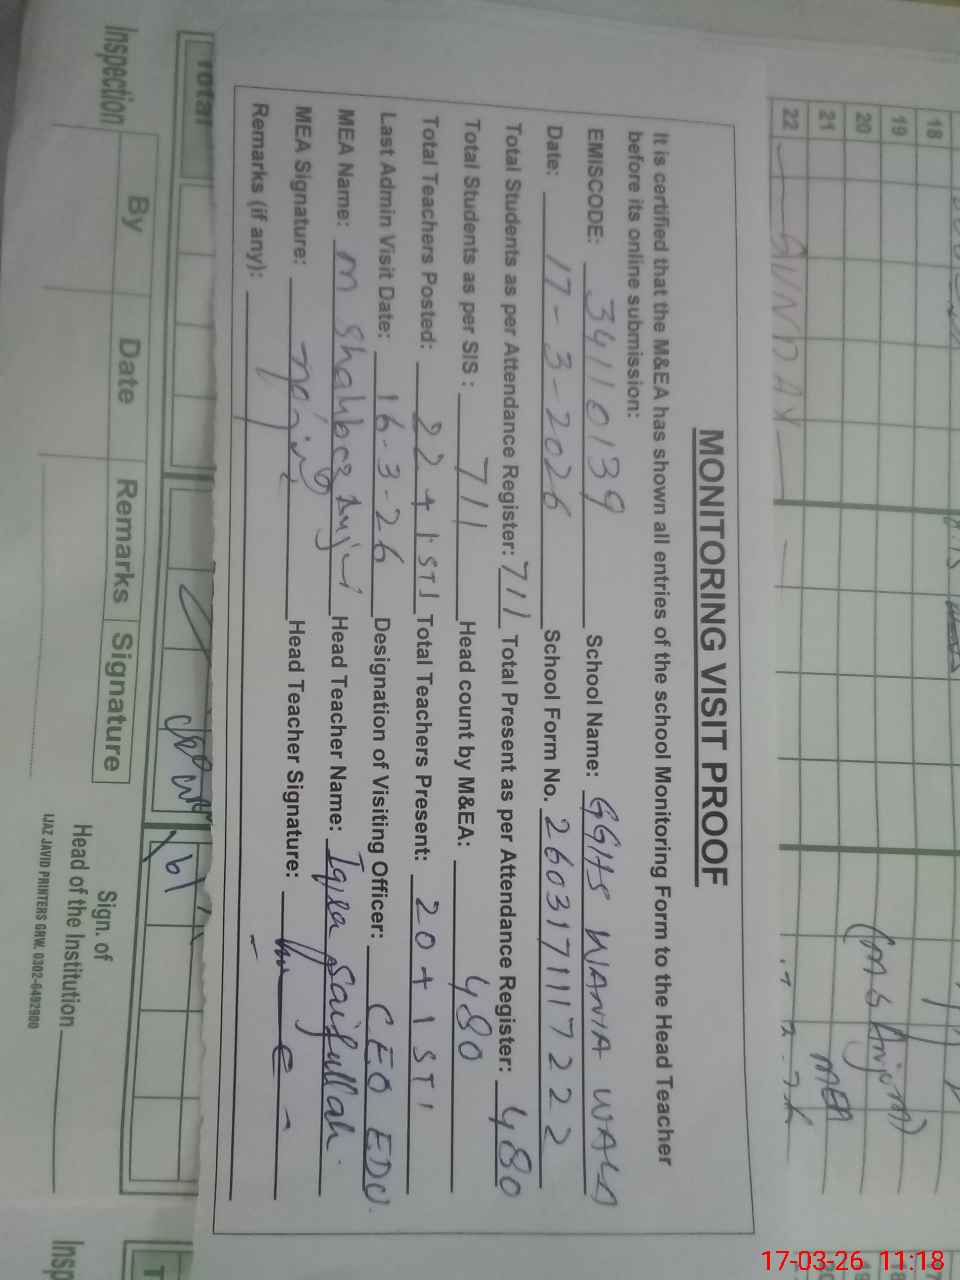 MONITORING VISIT PROOF
It is certified that the M&EA has shown all entries of the school Monitoring Form to the Head Teacher
before its online submission:
EMISCODE: 34110139 School Name: GGHS WANIA WALA
Date: 17-3-2026 School Form No. 2603171117222
Total Students as per Attendance Register: 711 Total Present as per Attendance Register: 480
Total Students as per SIS : 711 Head count by M&EA: 480
Total Teachers Posted: 22+1ST1 Total Teachers Present: 20+1ST1
Last Admin Visit Date: 16-3-26 Designation of Visiting Officer: CEO EDU.
MEA Name: M Shahbaz Anjum Head Teacher Name: Iqra Saifullah.
MEA Signature: Head Teacher Signature:
Remarks (if any):
18
19
20
21
22 SUNDAY
(M S Anjum)
MEA
Total
Inspection By Date Remarks Signature
Sign. of
Head of the Institution
IJAZ JAVID PRINTERS GRW. 0302-6492900
Insp
17-03-26 11:18